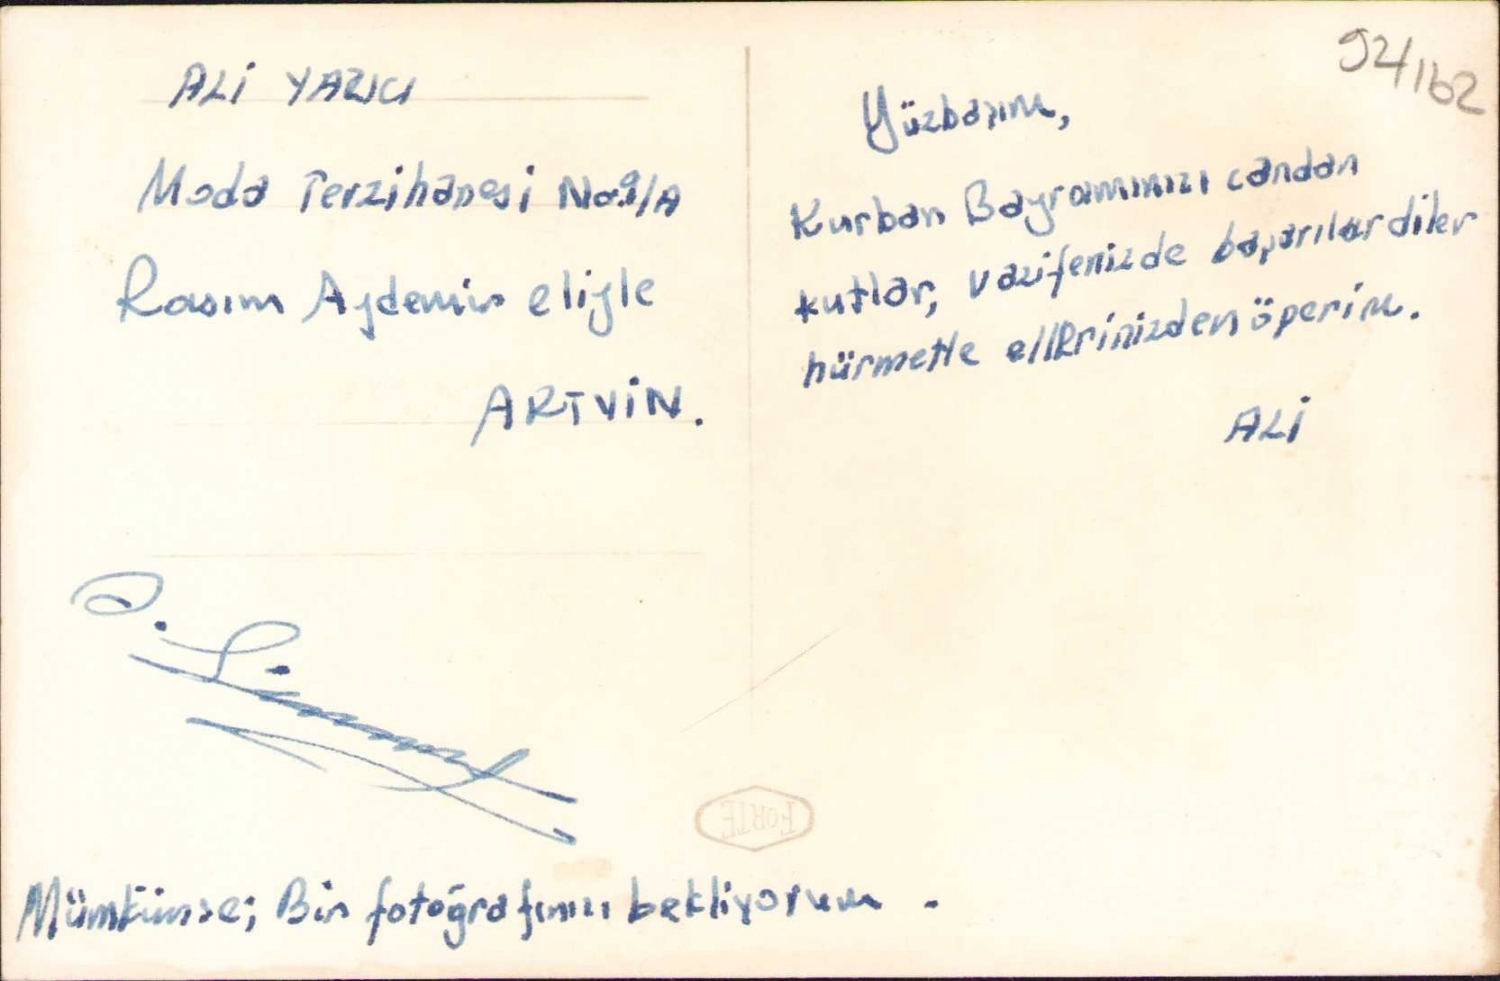 ALİ YAZICI
Moda Terzihanesi No:9/A
Rasım Aydemir eliyle
ARTVİN.
92/162
Yüzbaşım,
Kurban Bayramınızı candan
kutlar, vazifenizde başarılar diler
hürmetle ellerinizden öperim.
ALİ
FORTE
Mümkünse; Bir fotoğrafınızı bekliyorum.